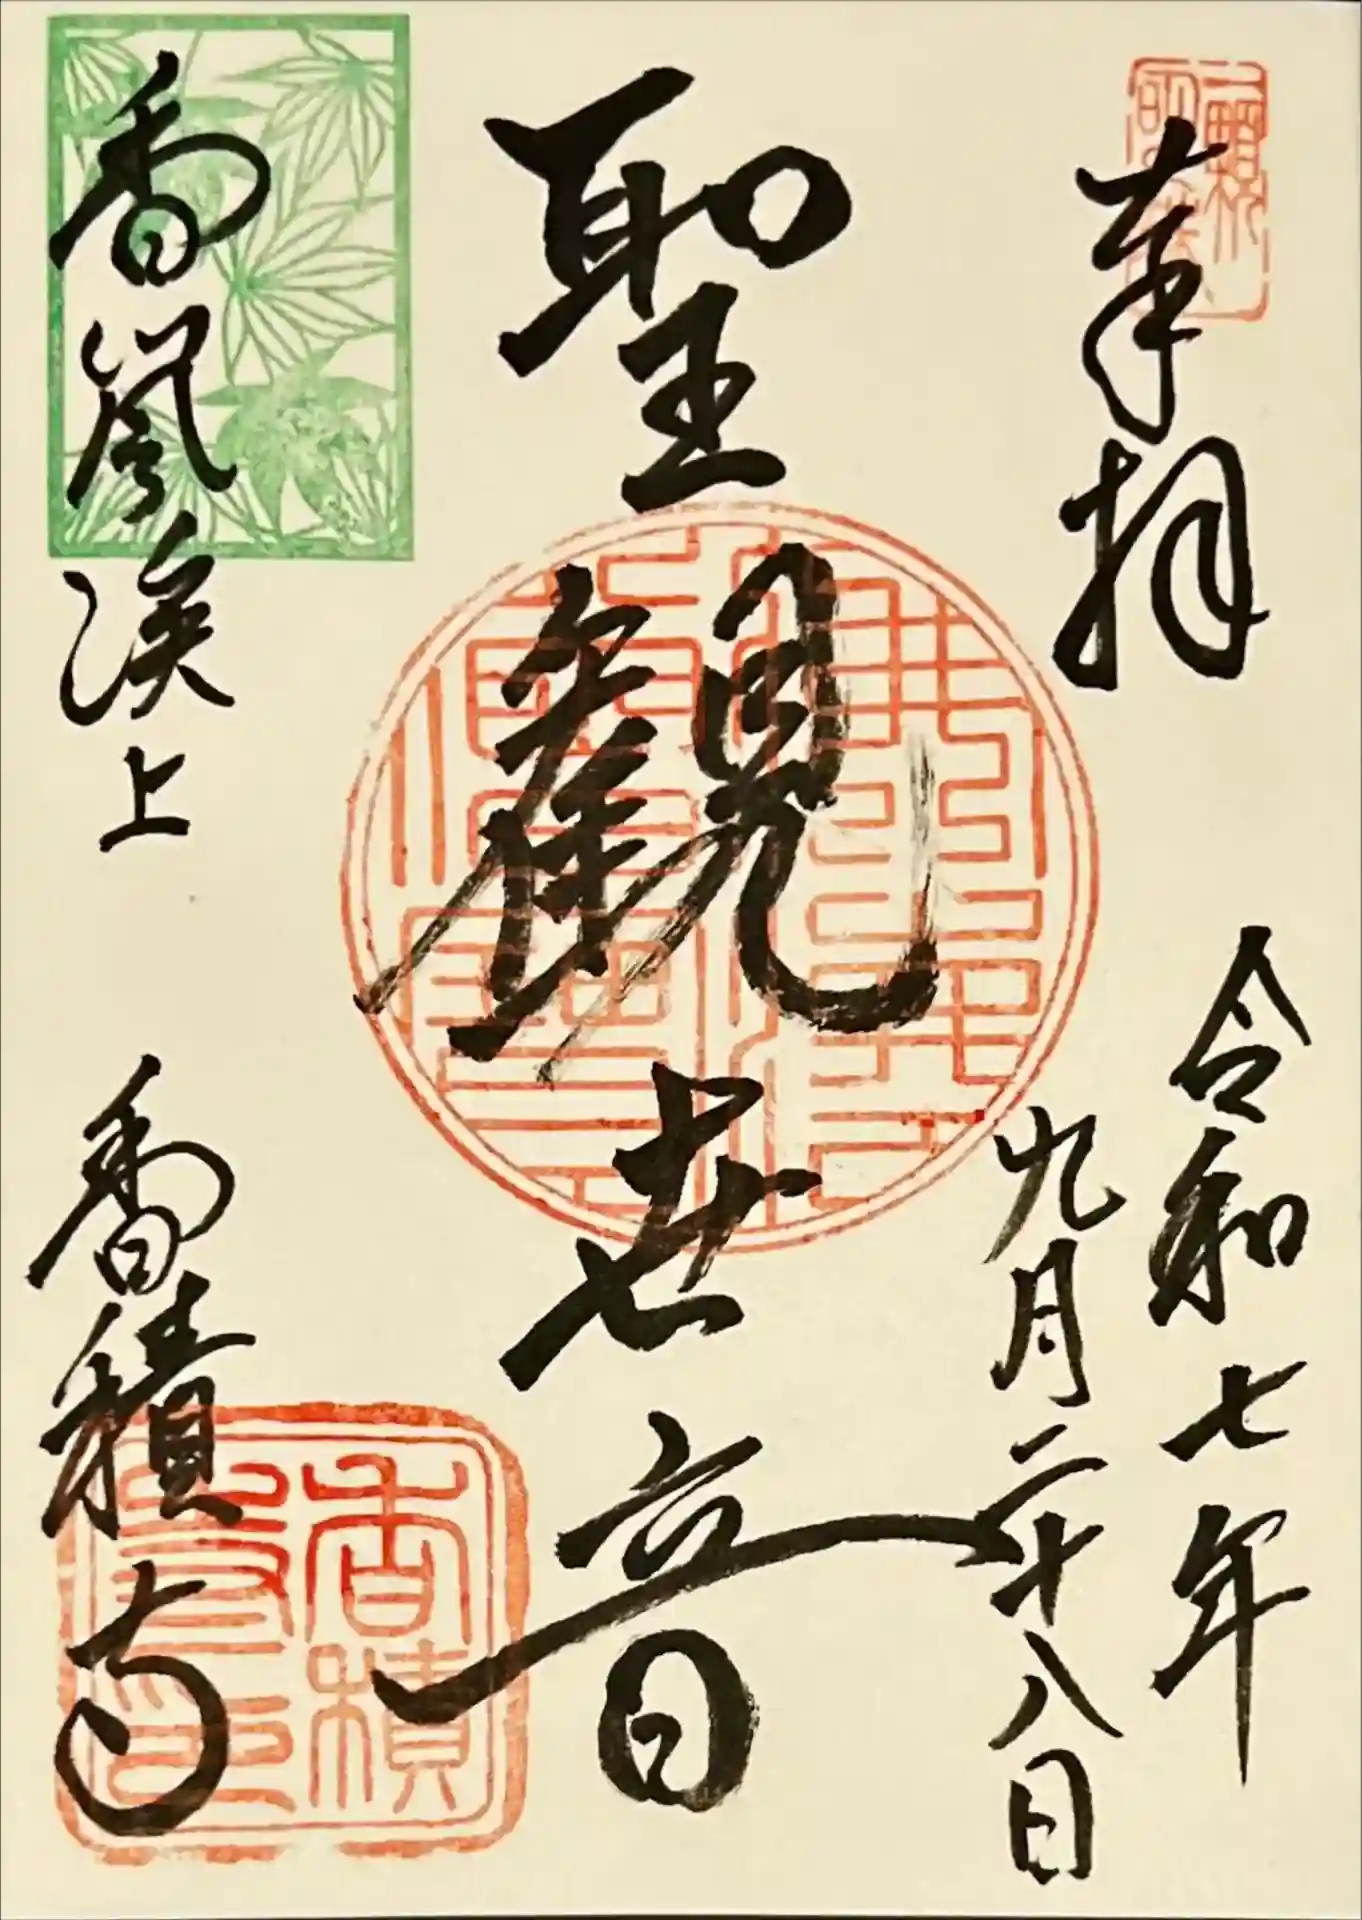 奉拝
令和七年
九月二十八日
聖観世音
香嵐渓上
香積寺
香積寺印